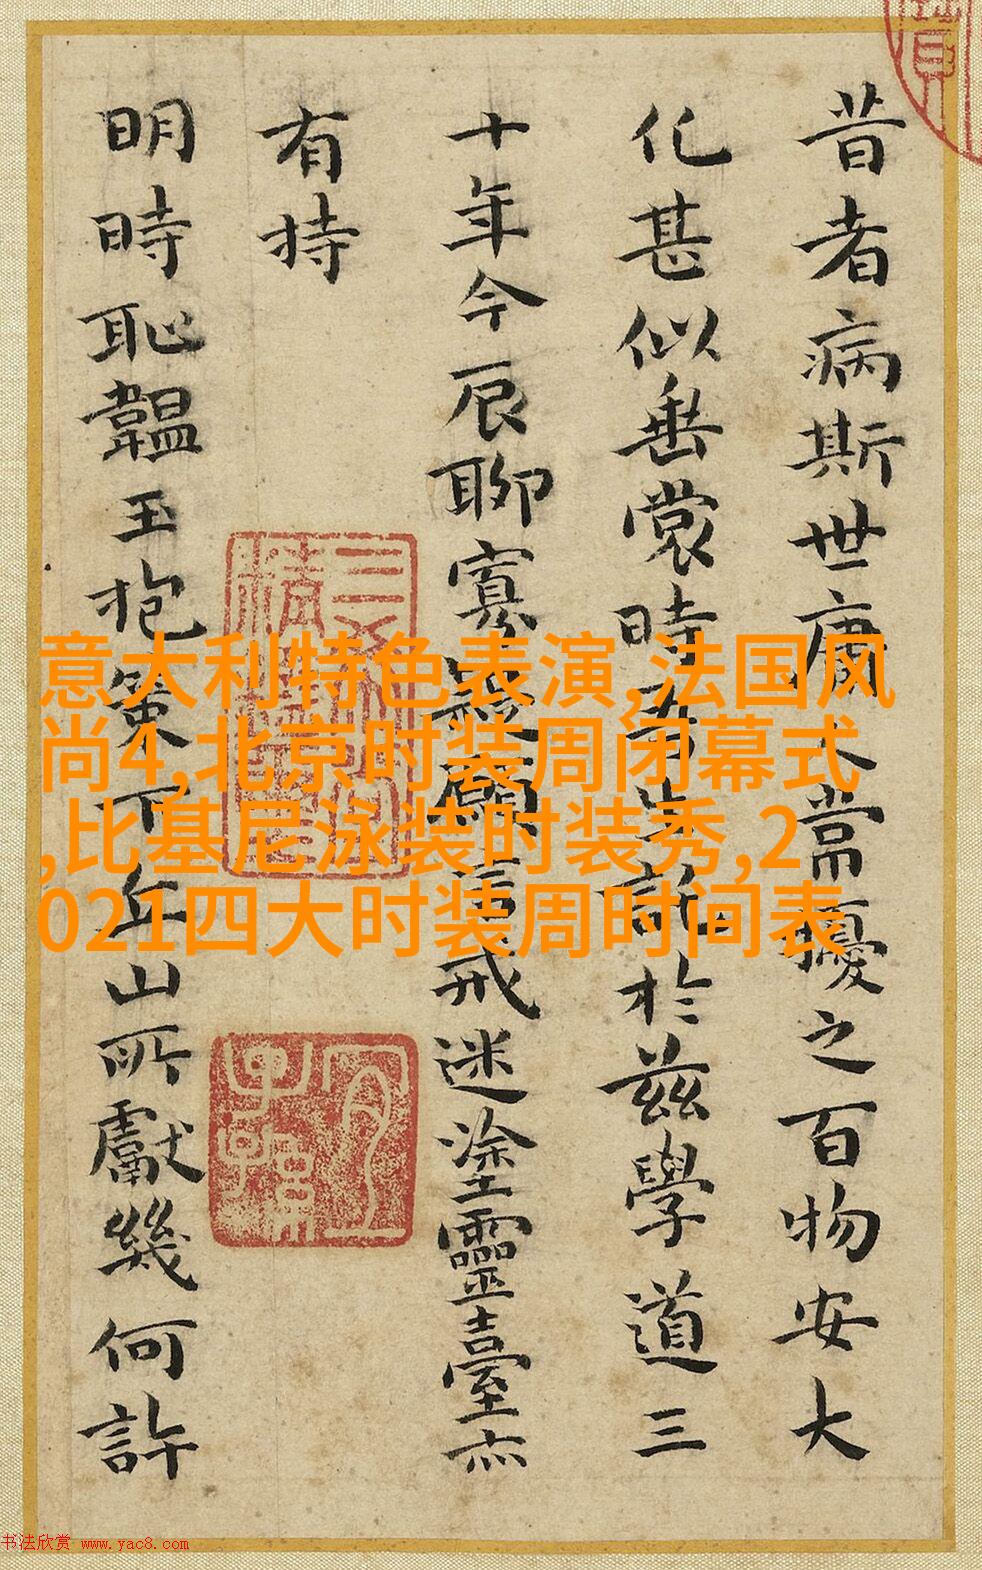 昔者病斯世犬常擾之百物安大
化甚似垂裳時吾生託於茲學道三
十年今辰聊寡疑願言戒迷塗靈臺亦
有持
明時恥韞玉抱策下丘山所獻幾何許
意大利特色表演,法国风
尚4,北京时装周闭幕式
,比基尼泳装时装秀,2
021四大时装周时间表
书法欣赏 www.yac8.com